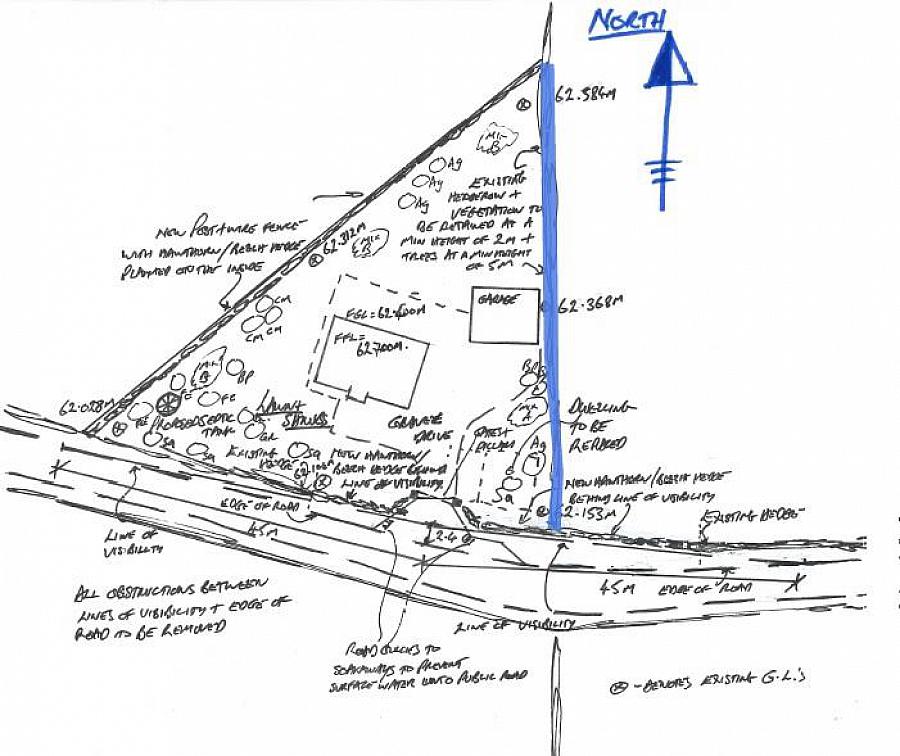 NORTH
62.584M
MIX B
Ag
Ag
Ag
EXISTING
HEDGEROW +
VEGETATION TO
BE RETAINED AT A
MIN HEIGHT OF 2M +
TREES AT A MIN HEIGHT
OF 5M
NEW POST + WIRE FENCE
WITH HAWTHORN/BEECH HEDGE
PLANTED ON THE INSIDE
62.312M
MIX B
GARAGE
62.368M
FGL = 62.400M
FFL =
62.700M.
CM
CM
CM
MIX B
BP
62.028M
PROPOSED SEPTIC
TANK
LAWNS
GRAVEL
DRIVE
EXISTING
HEDGE
NEW HAWTHORN/
BEECH HEDGE BEHIND
LINE OF VISIBILITY
MIX A
Ag
Sa
Sa
Sa
Sa
DWELLING
TO BE
NEW HAWTHORN/BEECH HEDGE
BEHIND LINE OF VISIBILITY
62.153M
EXISTING HEDGE
EDGE OF ROAD
45M
2.4
LINE OF
VISIBILITY
45M EDGE OF ROAD
ALL OBSTRUCTIONS BETWEEN
LINES OF VISIBILITY + EDGE OF
ROAD TO BE REMOVED
LINE OF VISIBILITY
ROAD GULLIES TO
SOAKAWAYS TO PREVENT
SURFACE WATER ONTO PUBLIC ROAD
- DENOTES EXISTING G.L.'s